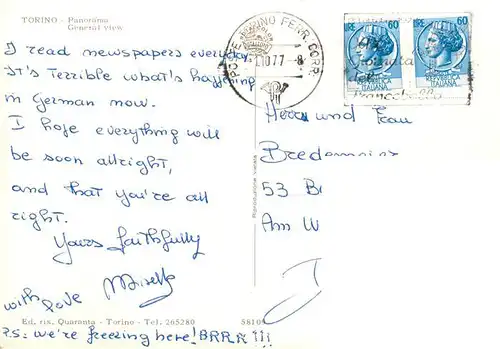 TORINO - Panorama
General view
I read newspapers everyday
It's Terrible what's happening
in German now.
I hope everything will
be soon allright,
and that you're all
right.
Yours faithfully
Mirella
with love
Ed. rix. Quaranta - Torino - Tel. 265280 58101
P.S: we're freezing here! BRRR!!!
POSTE TORINO FERR. CORR.
10.77 - 8
60
60
ITALIANA
ITALIANA
Giornata
del
Francobollo
Herrn und Frau
53 B
Am W